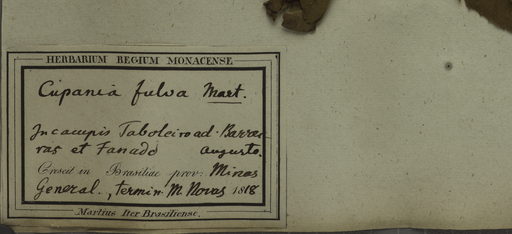 HERBARIUM REGIUM MONACENSE
Cupania fulva Mart.
In campis Taboleiro ad Barrei-
ras et Fanado Augusto.
Crescit in Brasiliae prov. Minas
General., termin. M. Novas 1818
Martius Iter Brasiliense.